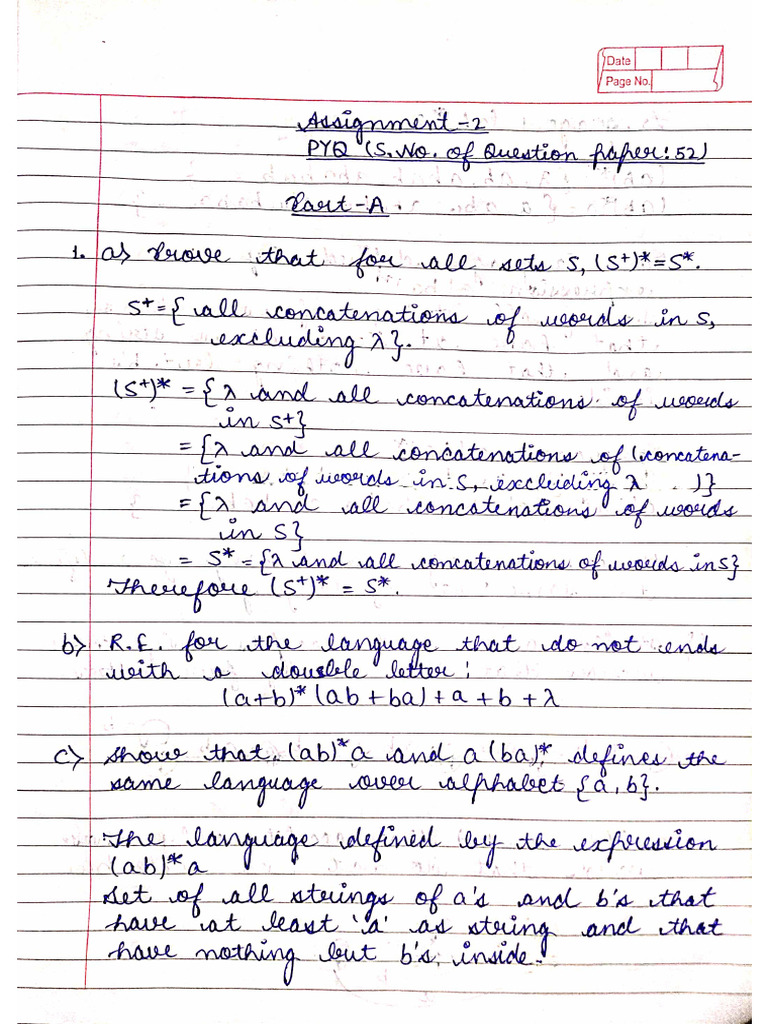 Date
Page No.
Assignment-2
PYQ (S.No. of Question paper: 52)
Part-A
1. a) Prove that for all sets S, (S⁺)* = S*.
S⁺ = { all concatenations of words in S,
excluding λ}.
(S⁺)* = {λ and all concatenations of words
in S⁺}
= {λ and all concatenations of (concatena-
tions of words in S, excluding λ )}
= {λ and all concatenations of words
in S}
= S* = {λ and all concatenations of words in S}
Therefore (S⁺)* = S*.
b) R.E. for the language that do not ends
with a double letter:
(a+b)* (ab + ba) + a + b + λ
c) Show that (ab)*a and a(ba)* defines the
same language over alphabet {a, b}.
The language defined by the expression
(ab)*a
set of all strings of a's and b's that
have at least 'a' as string and that
have nothing but b's inside.